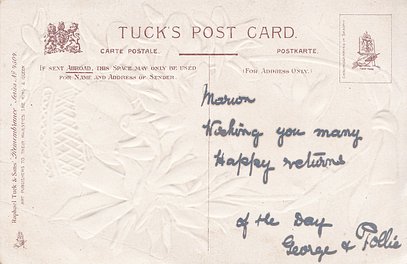 TUCK'S POST CARD.
CARTE POSTALE.
POSTKARTE.
IF SENT ABROAD, THIS SPACE MAY ONLY BE USED
FOR NAME AND ADDRESS OF SENDER.
(FOR ADDRESS ONLY.)
Raphael Tuck & Sons' "Remembrance" Series
ART PUBLISHERS TO THEIR MAJESTIES THE KING & QUEEN
Marion
Wishing you many
Happy returns
of the Day
George & Pollie